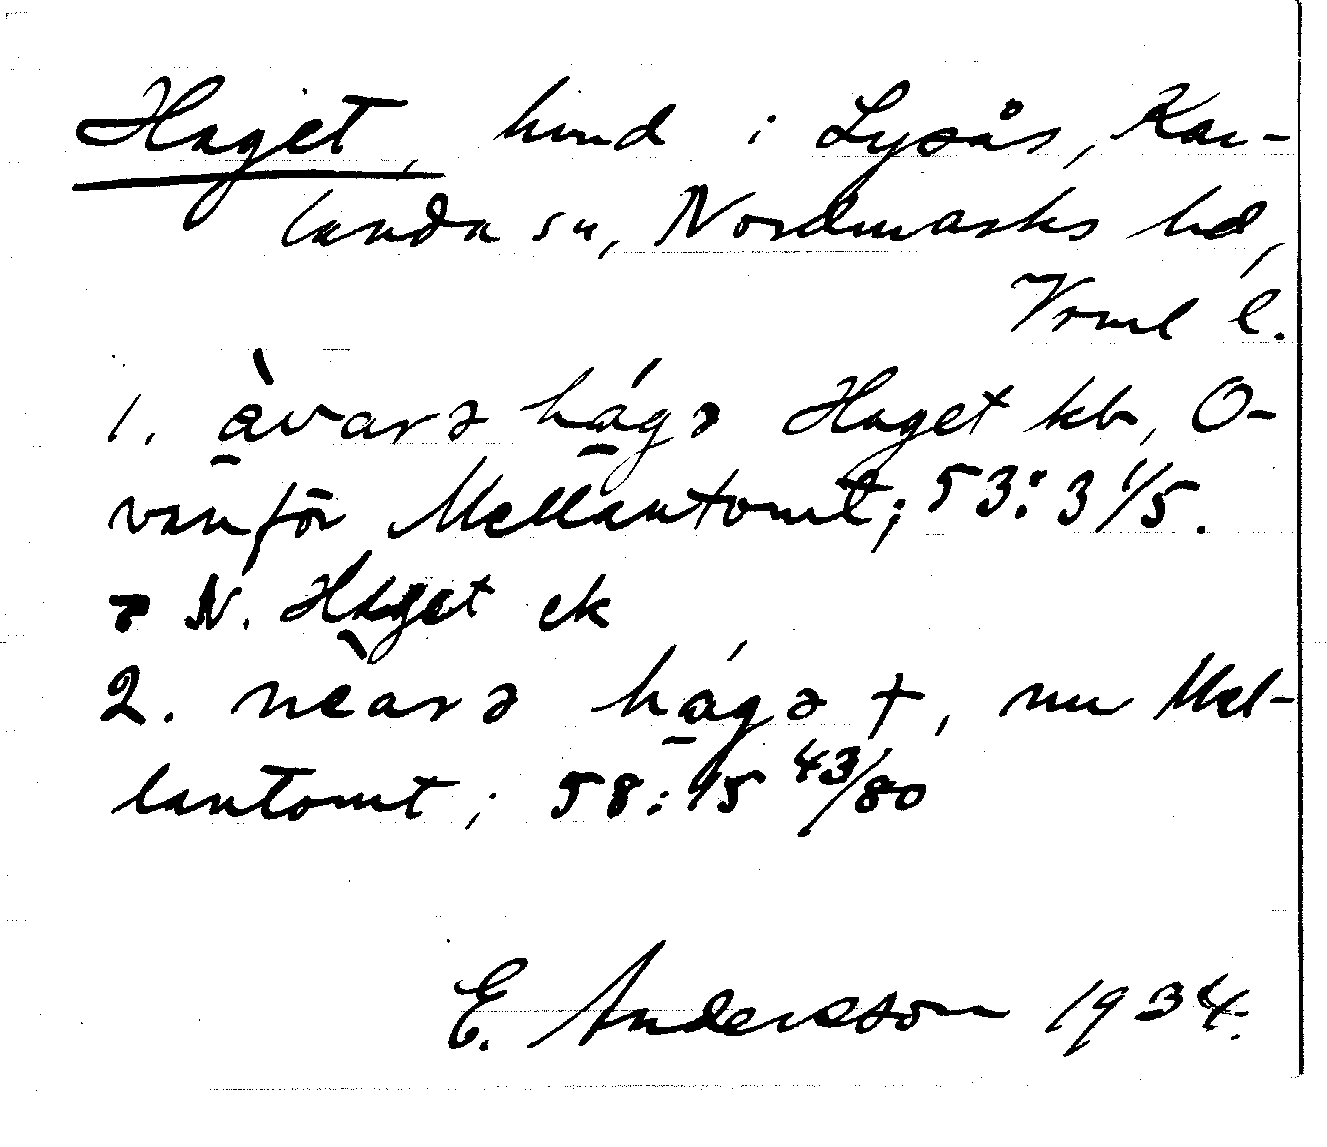 Haget, hmd i Lysås, Kar-
landa sn, Nordmarks hd,
Vrml l.
1. àvarə hágə Haget kb, O-
vanför Mellantomt; 53:3 1/5.
N. Haget ek
2. nèarə hágə †, nu Mel-
lantomt; 58:15 43/80
E. Andersson 1934.